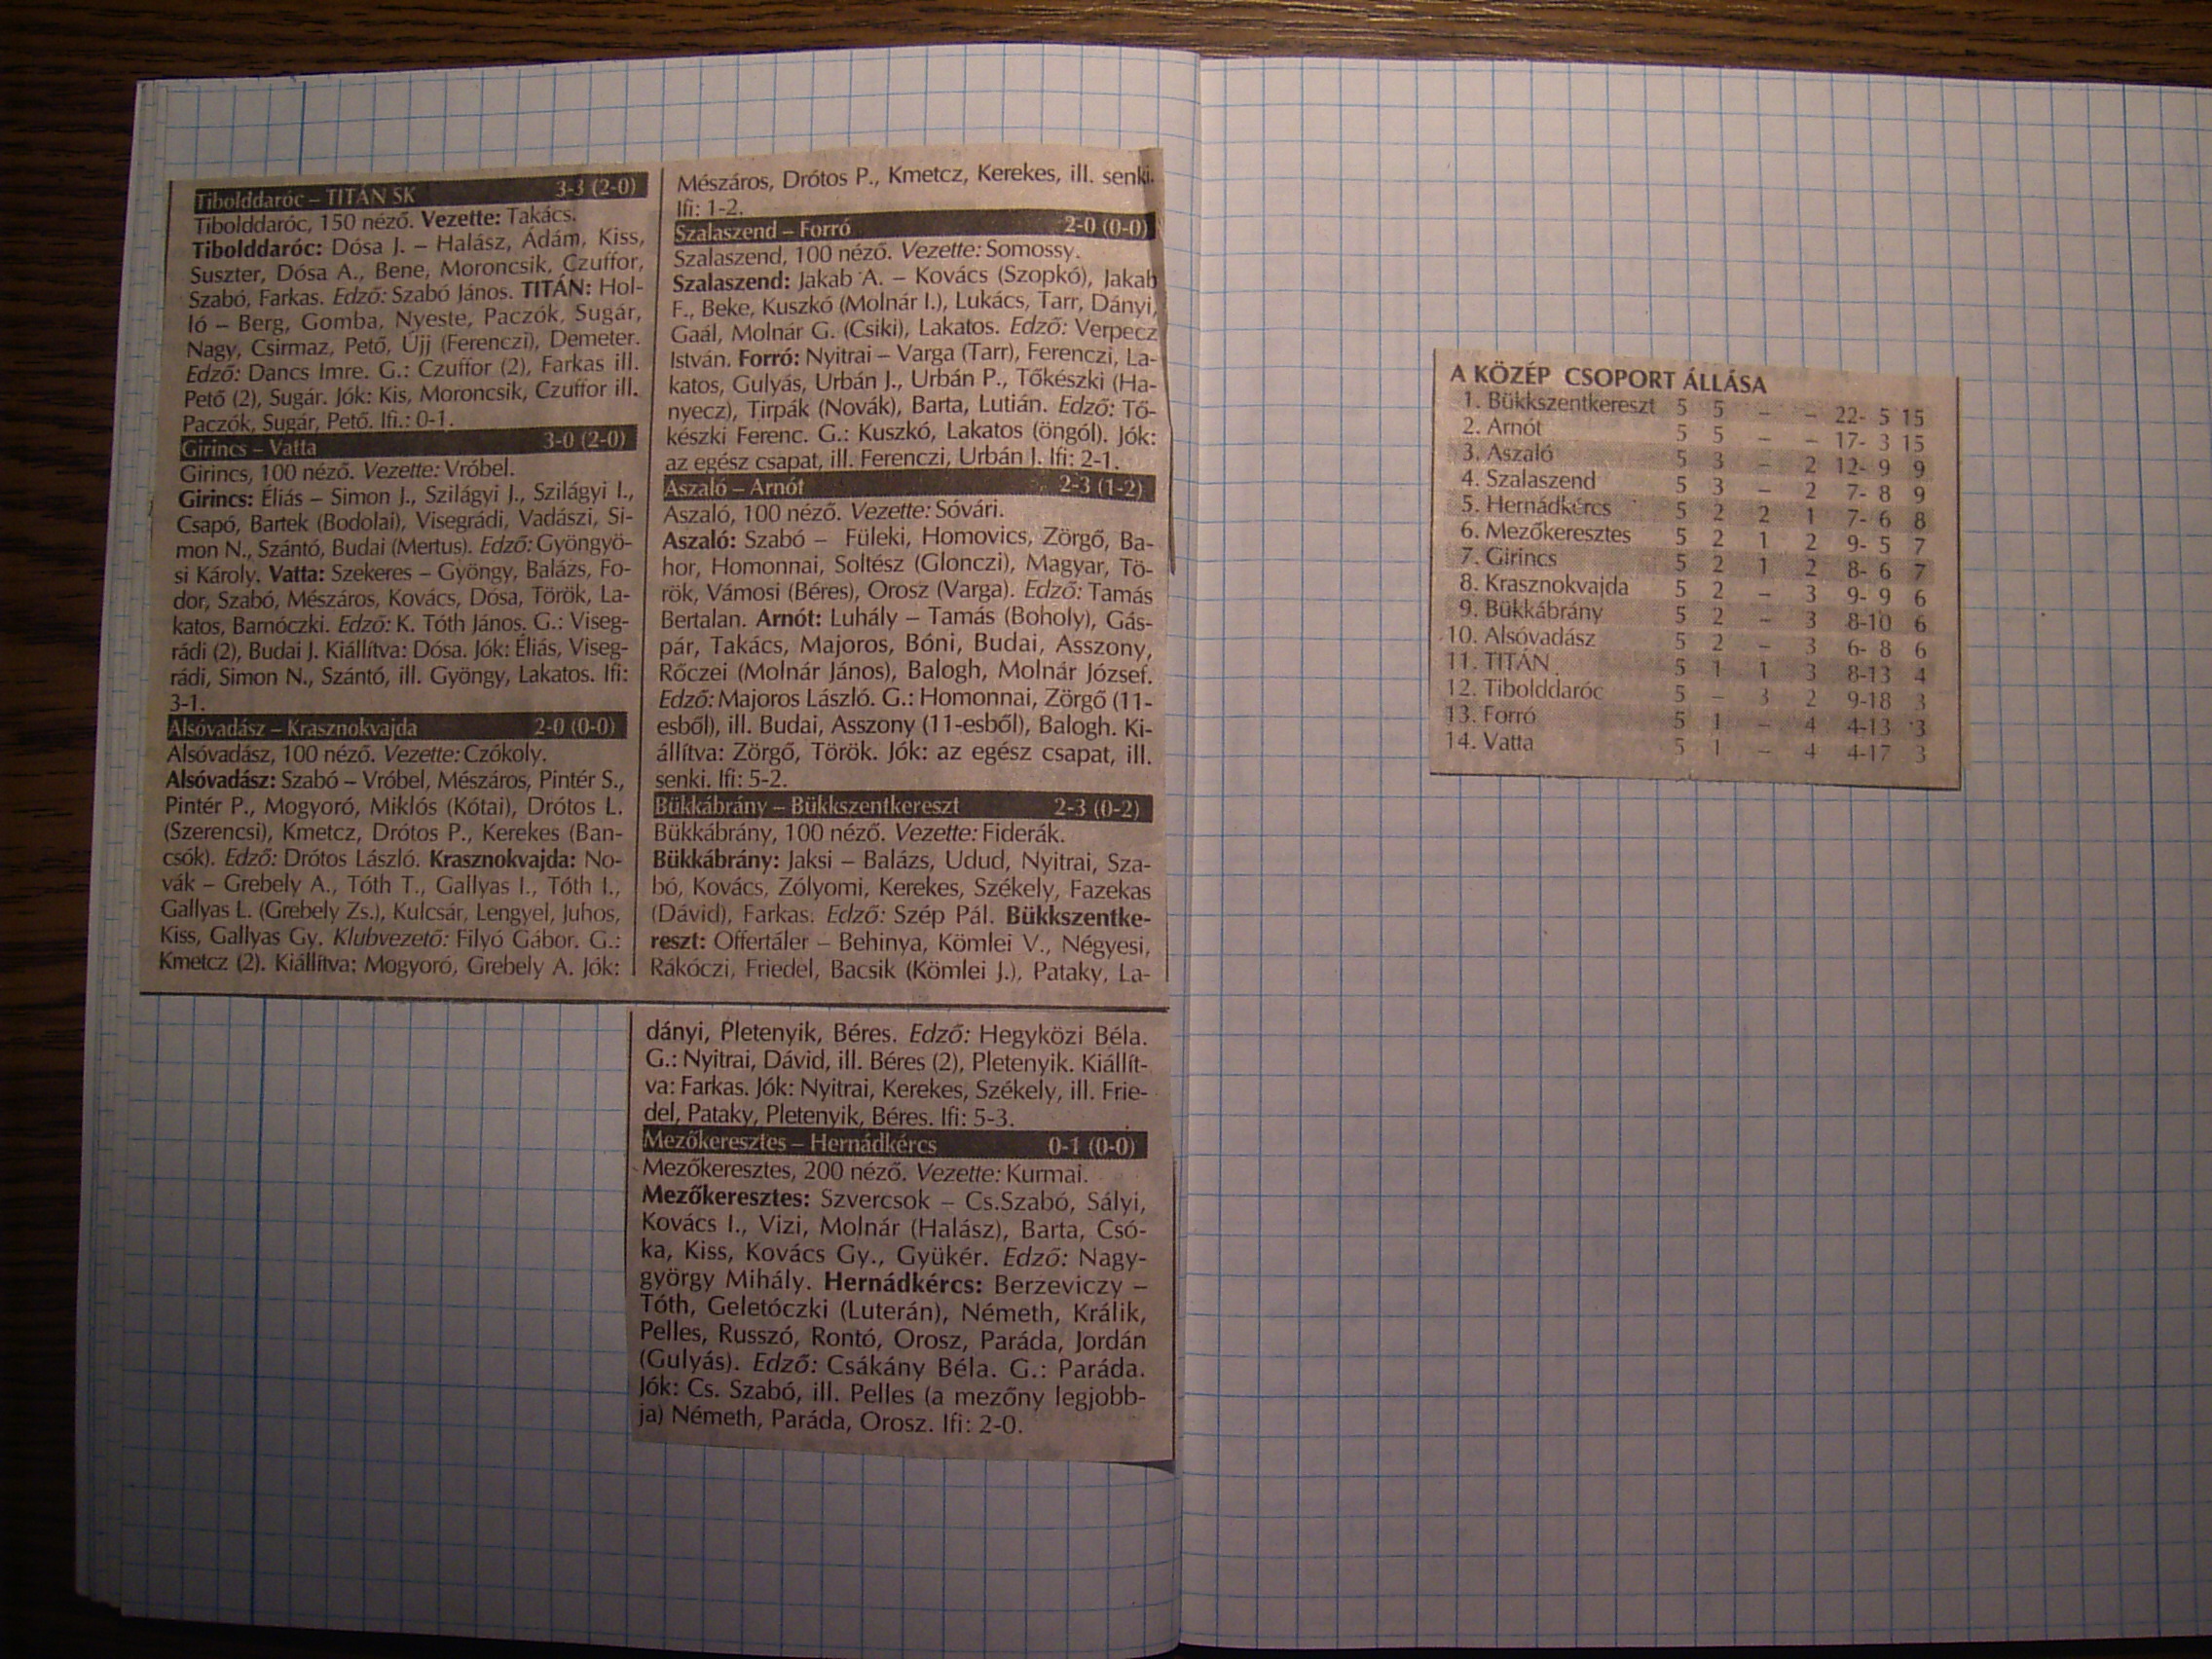 Tibolddaróc – TITÁN SK 3-3 (2-0)
Tibolddaróc, 150 néző. Vezette: Takács.
Tibolddaróc: Dósa J. – Halász, Ádám, Kiss,
Suszter, Dósa A., Bene, Moroncsik, Czuffor,
Szabó, Farkas. Edző: Szabó János. TITÁN: Hol-
ló – Berg, Gomba, Nyeste, Paczók, Sugár,
Nagy, Csirmaz, Pető, Újj (Ferenczi), Demeter.
Edző: Dancs Imre. G.: Czuffor (2), Farkas ill.
Pető (2), Sugár. Jók: Kis, Moroncsik, Czuffor ill.
Paczók, Sugár, Pető. Ifi.: 0-1.
Girincs – Vatta 3-0 (2-0)
Girincs, 100 néző. Vezette: Vróbel.
Girincs: Éliás – Simon J., Szilágyi J., Szilágyi I.,
Csapó, Bartek (Bodolai), Visegrádi, Vadászi, Si-
mon N., Szántó, Budai (Mertus). Edző: Gyöngyö-
si Károly. Vatta: Szekeres – Gyöngy, Balázs, Fo-
dor, Szabó, Mészáros, Kovács, Dósa, Török, La-
katos, Barnóczki. Edző: K. Tóth János. G.: Viseg-
rádi (2), Budai J. Kiállítva: Dósa. Jók: Éliás, Viseg-
rádi, Simon N., Szántó, ill. Gyöngy, Lakatos. Ifi:
3-1.
Alsóvadász – Krasznokvajda 2-0 (0-0)
Alsóvadász, 100 néző. Vezette: Czókoly.
Alsóvadász: Szabó – Vróbel, Mészáros, Pintér S.,
Pintér P., Mogyoró, Miklós (Kótai), Drótos L.
(Szerencsi), Kmetcz, Drótos P., Kerekes (Ban-
csók). Edző: Drótos László. Krasznokvajda: No-
vák – Grebely A., Tóth T., Gallyas I., Tóth I.,
Gallyas L. (Grebely Zs.), Kulcsár, Lengyel, Juhos,
Kiss, Gallyas Gy. Klubvezető: Filyó Gábor. G.:
Kmetcz (2). Kiállítva: Mogyoró, Grebely A. Jók:
Mészáros, Drótos P., Kmetcz, Kerekes, ill. senki.
Ifi: 1-2.
Szalaszend – Forró 2-0 (0-0)
Szalaszend, 100 néző. Vezette: Somossy.
Szalaszend: Jakab A. – Kovács (Szopkó), Jakab
F., Beke, Kuszkó (Molnár I.), Lukács, Tarr, Dányi,
Gaál, Molnár G. (Csiki), Lakatos. Edző: Verpecz
István. Forró: Nyitrai – Varga (Tarr), Ferenczi, La-
katos, Gulyás, Urbán J., Urbán P., Tőkészki (Ha-
nyecz), Tirpák (Novák), Barta, Lutián. Edző: Tő-
készki Ferenc. G.: Kuszkó, Lakatos (öngól). Jók:
az egész csapat, ill. Ferenczi, Urbán J. Ifi: 2-1.
Aszaló – Arnót 2-3 (1-2)
Aszaló, 100 néző. Vezette: Sóvári.
Aszaló: Szabó – Füleki, Homovics, Zörgő, Ba-
hor, Homonnai, Soltész (Glonczi), Magyar, Tö-
rök, Vámosi (Béres), Orosz (Varga). Edző: Tamás
Bertalan. Arnót: Luhály – Tamás (Boholy), Gás-
pár, Takács, Majoros, Bóni, Budai, Asszony,
Rőczei (Molnár János), Balogh, Molnár József.
Edző: Majoros László. G.: Homonnai, Zörgő (11-
esből), ill. Budai, Asszony (11-esből), Balogh. Ki-
állítva: Zörgő, Török. Jók: az egész csapat, ill.
senki. Ifi: 5-2.
Bükkábrány – Bükkszentkereszt 2-3 (0-2)
Bükkábrány, 100 néző. Vezette: Fiderák.
Bükkábrány: Jaksi – Balázs, Udud, Nyitrai, Sza-
bó, Kovács, Zólyomi, Kerekes, Székely, Fazekas
(Dávid), Farkas. Edző: Szép Pál. Bükkszentke-
reszt: Offertáler – Behinya, Kömlei V., Négyesi,
Rákóczi, Friedel, Bacsik (Kömlei J.), Pataky, La-
dányi, Pletenyik, Béres. Edző: Hegyközi Béla.
G.: Nyitrai, Dávid, ill. Béres (2), Pletenyik. Kiállít-
va: Farkas. Jók: Nyitrai, Kerekes, Székely, ill. Frie-
del, Pataky, Pletenyik, Béres. Ifi: 5-3.
Mezőkeresztes – Hernádkércs 0-1 (0-0)
Mezőkeresztes, 200 néző. Vezette: Kurmai.
Mezőkeresztes: Szvercsok – Cs.Szabó, Sályi,
Kovács I., Vizi, Molnár (Halász), Barta, Csó-
ka, Kiss, Kovács Gy., Gyükér. Edző: Nagy-
györgy Mihály. Hernádkércs: Berzeviczy –
Tóth, Geletóczki (Luterán), Németh, Králik,
Pelles, Russzó, Rontó, Orosz, Paráda, Jordán
(Gulyás). Edző: Csákány Béla. G.: Paráda.
Jók: Cs. Szabó, ill. Pelles (a mezőny legjobb-
ja) Németh, Paráda, Orosz. Ifi: 2-0.
A KÖZÉP CSOPORT ÁLLÁSA
1. Bükkszentkereszt 5 5 – – 22- 5 15
2. Arnót 5 5 – – 17- 3 15
3. Aszaló 5 3 – 2 12- 9 9
4. Szalaszend 5 3 – 2 7- 8 9
5. Hernádkércs 5 2 2 1 7- 6 8
6. Mezőkeresztes 5 2 1 2 9- 5 7
7. Girincs 5 2 1 2 8- 6 7
8. Krasznokvajda 5 2 – 3 9- 9 6
9. Bükkábrány 5 2 – 3 8-10 6
10. Alsóvadász 5 2 – 3 6- 8 6
11. TITÁN 5 1 1 3 8-13 4
12. Tibolddaróc 5 – 3 2 9-18 3
13. Forró 5 1 – 4 4-13 3
14. Vatta 5 1 – 4 4-17 3